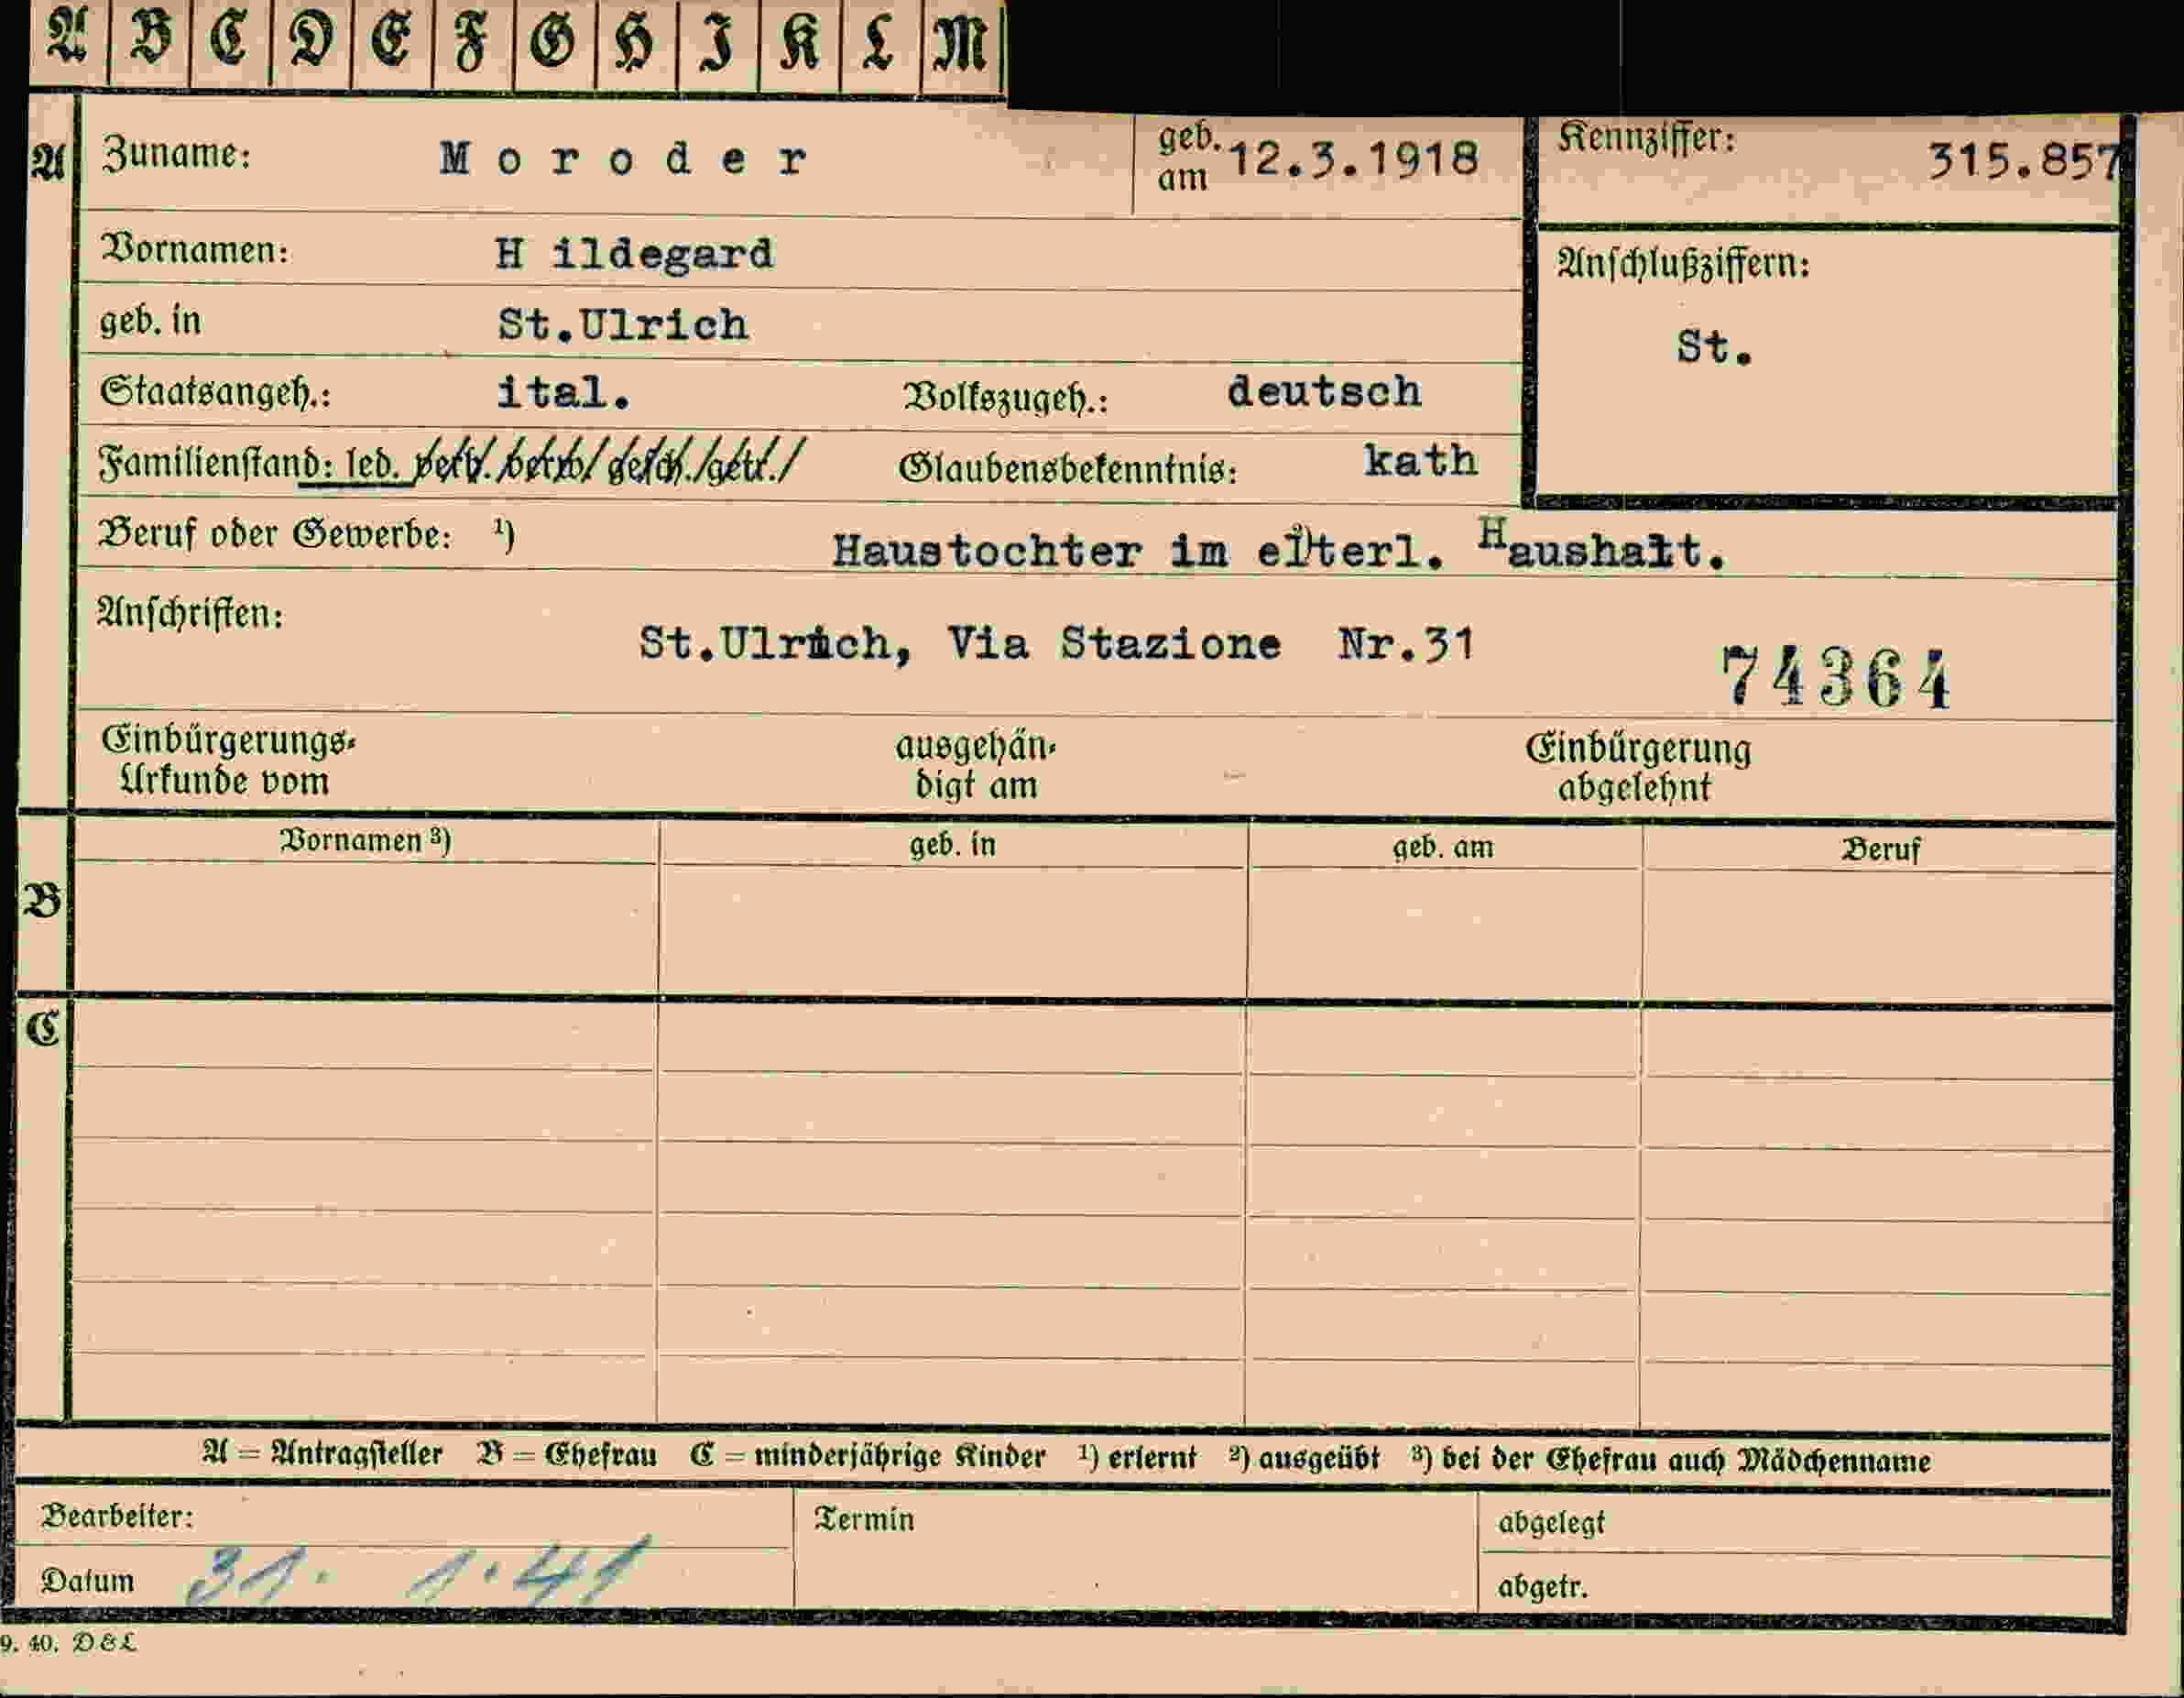 A B C D E F G H I K L M
A Zuname: Moroder geb. am 12.3.1918 Kennziffer: 315.857
Vornamen: H ildegard Anschlußziffern:
geb. in St.Ulrich St.
Staatsangeh.: ital. Volkszugeh.: deutsch
Familienstand: led. verh. verw. gesch. getr. Glaubensbekenntnis: kath
Beruf oder Gewerbe: ¹) Haustochter im elterl. Haushalt.
Anschriften: St.Ulrich, Via Stazione Nr.31 74364
Einbürgerungs- ausgehän- Einbürgerung
Urkunde vom digt am abgelehnt
Vornamen ³) geb. in geb. am Beruf
B
C
A = Antragsteller B = Ehefrau C = minderjährige Kinder ¹) erlernt ²) ausgeübt ³) bei der Ehefrau auch Mädchenname
Bearbeiter: Termin abgelegt
Datum 31. 1.41 abgetr.
9. 40. D&L